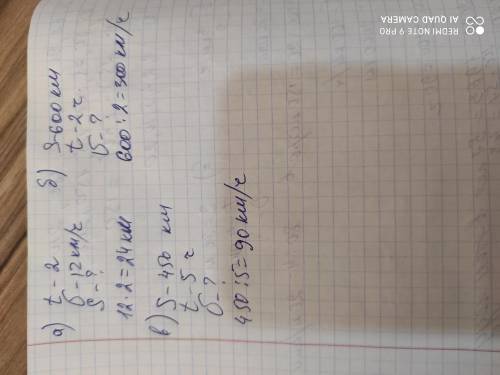 а) t - 2
υ - 12 км/ч
S - ?
12 · 2 = 24 км
б) S - 600 км
t - 2 ч
υ - ?
600 : 2 = 300 км/ч
в) S - 450 км
t - 5 ч
υ - ?
450 : 5 = 90 км/ч
REDMI NOTE 9 PRO
AI QUAD CAMERA